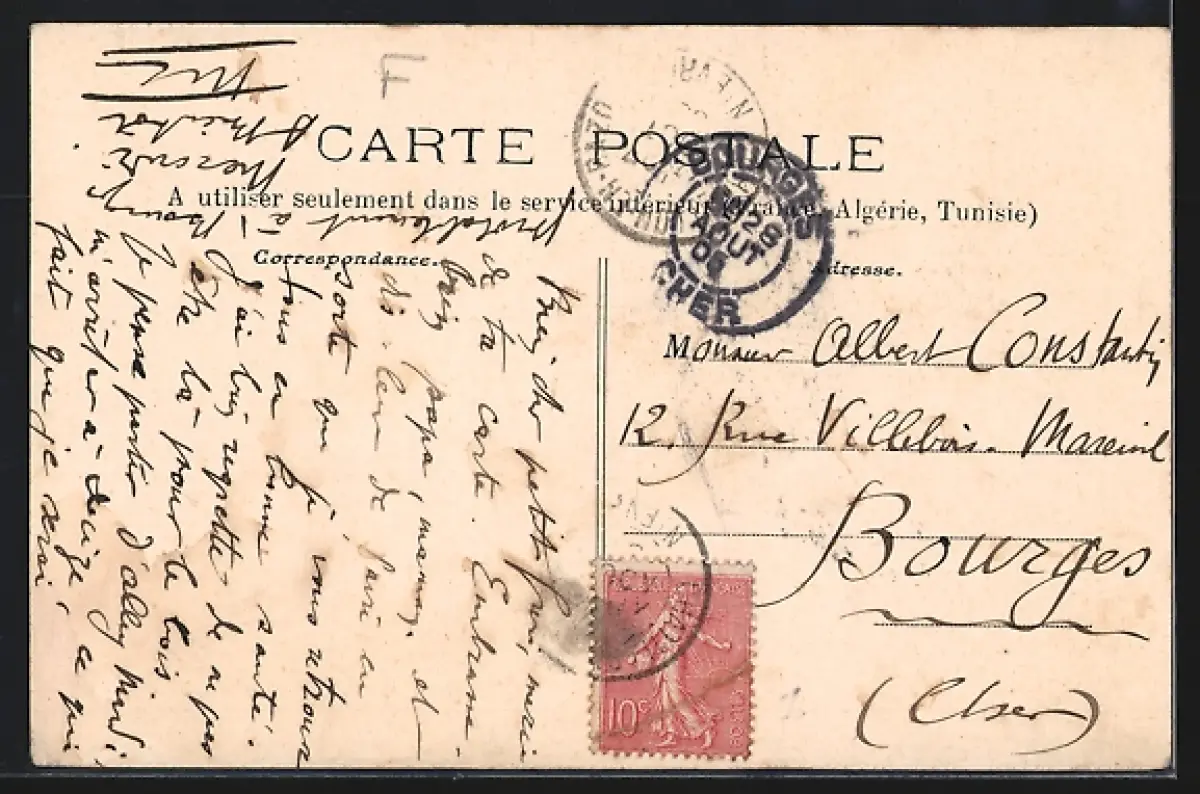 CARTE POSTALE
A utiliser seulement dans le service intérieur (France, Algérie, Tunisie)
Correspondance.
Adresse.
Monsieur Albert Constantin
12, Rue Villebois-Mareuil
Bourges
(Cher)
BOURGES
29
AOUT
CHER
10c
Bien cher petit frère, merci
de ta carte. Embrasse
bien papa, maman, et
dis-leur de faire en
sorte que je vous retrouve
tous en bonne santé.
J'ai bien regretté de ne pas
être là pour le
Je pense partir d'
m'arrêter à Decize, ce qui
fait que je serai
probablement à Bourges
Mercredi